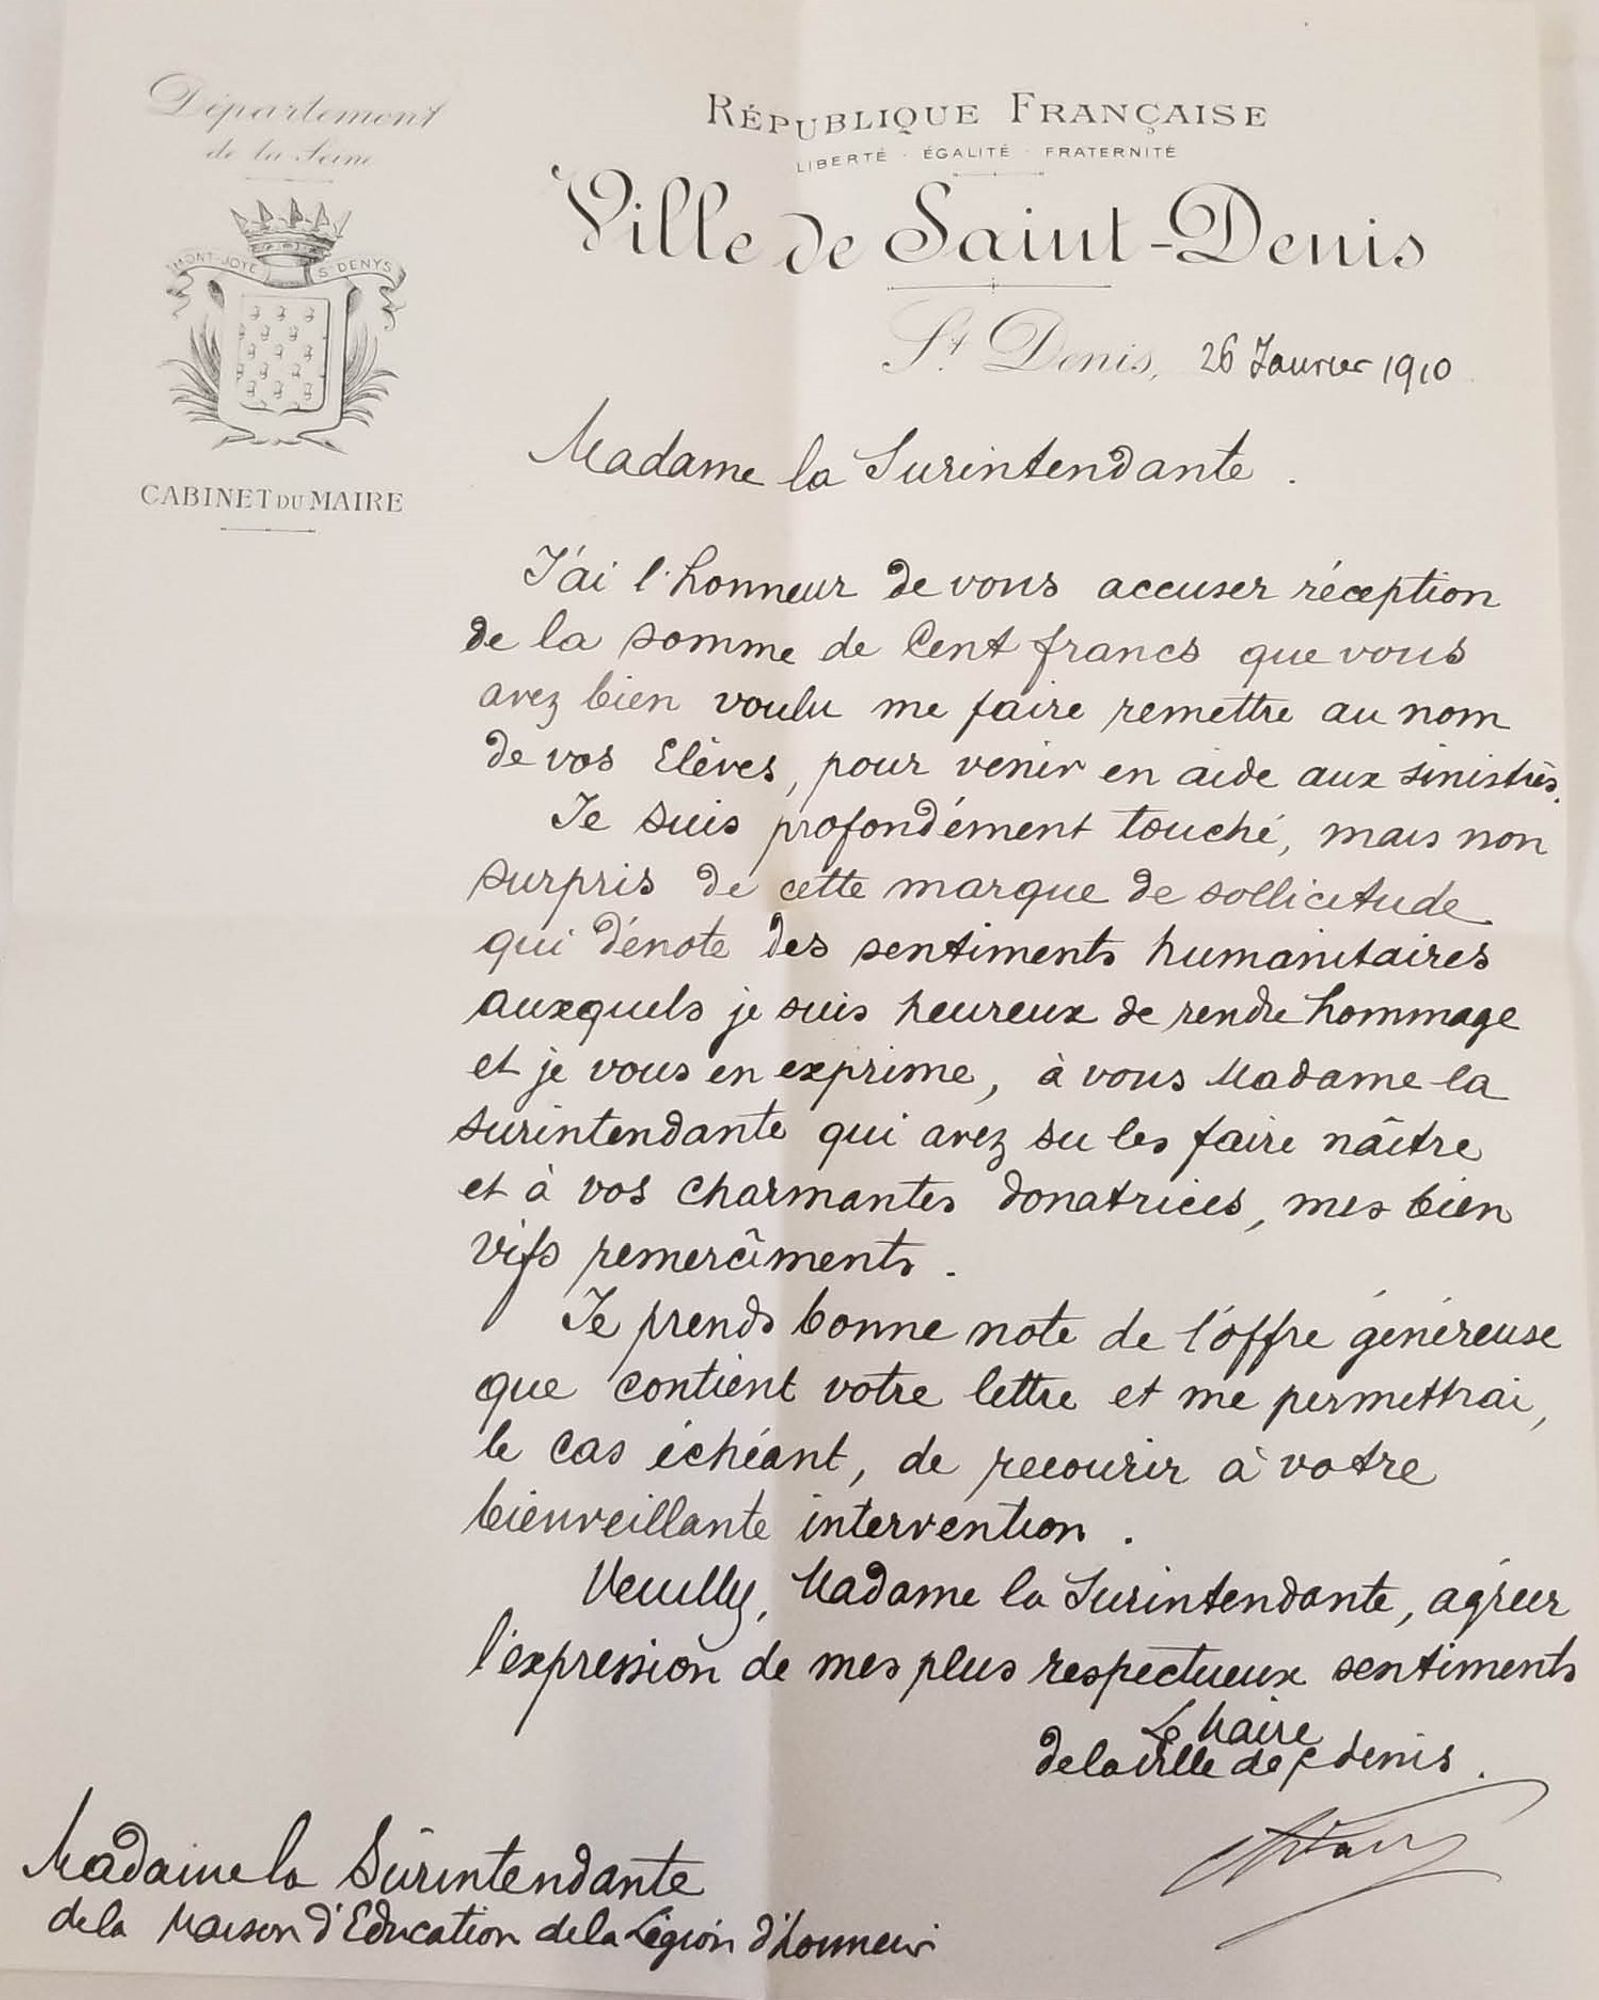 Département
de la Seine
MONT-JOYE St DENYS
CABINET DU MAIRE
RÉPUBLIQUE FRANÇAISE
LIBERTÉ · ÉGALITÉ · FRATERNITÉ
Ville de Saint-Denis
St. Denis, 26 Janvier 1910
Madame la Surintendante.
J'ai l'honneur de vous accuser réception
de la somme de Cent francs que vous
avez bien voulu me faire remettre au nom
de vos Elèves, pour venir en aide aux sinistrés.
Je suis profondément touché, mais non
surpris de cette marque de sollicitude
qui dénote des sentiments humanitaires
auxquels je suis heureux de rendre hommage
et je vous en exprime, à vous Madame la
surintendante qui avez su les faire naître
et à vos charmantes donatrices, mes bien
vifs remercîments.
Je prends bonne note de l'offre généreuse
que contient votre lettre et me permettrai,
le cas échéant, de recourir à votre
bienveillante intervention.
Veuillez, Madame la Surintendante, agréer
l'expression de mes plus respectueux sentiments
Le Maire
de la ville de St denis.
Madame la Surintendante
de la Maison d'Education de la Légion d'honneur